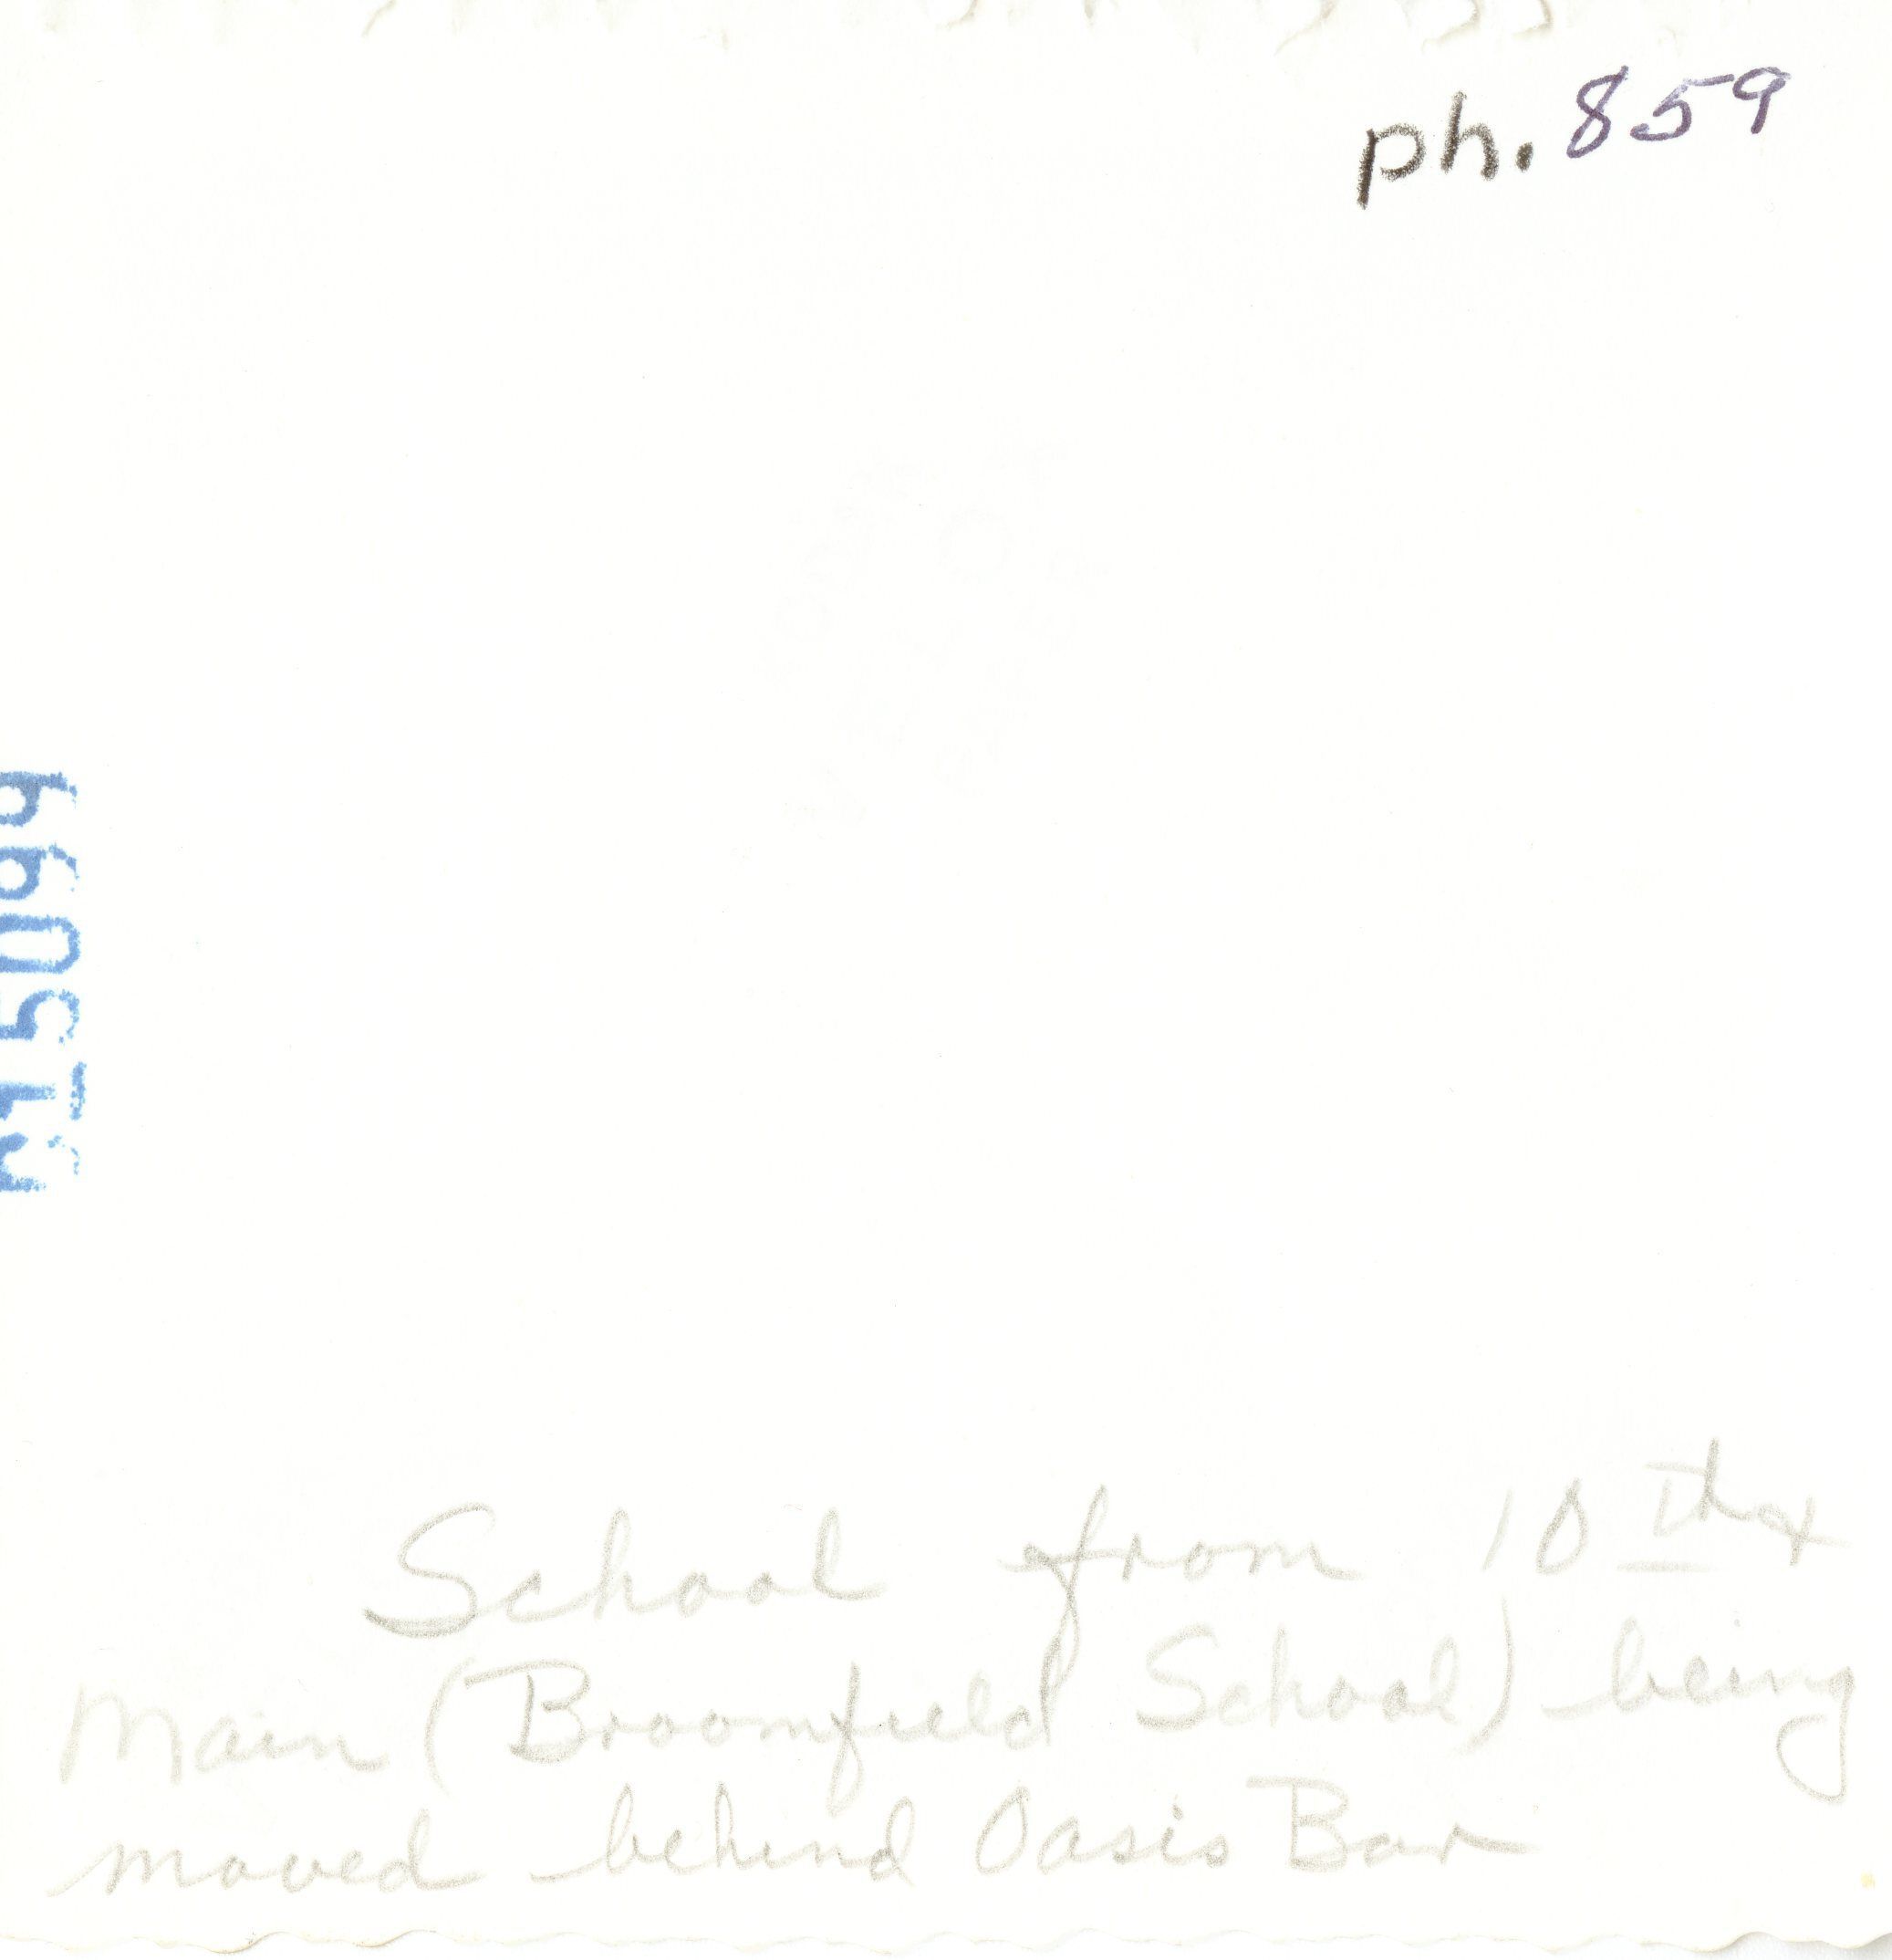 ph. 859
School from 10th &
Main (Broomfield School) being
moved behind Oasis Bar